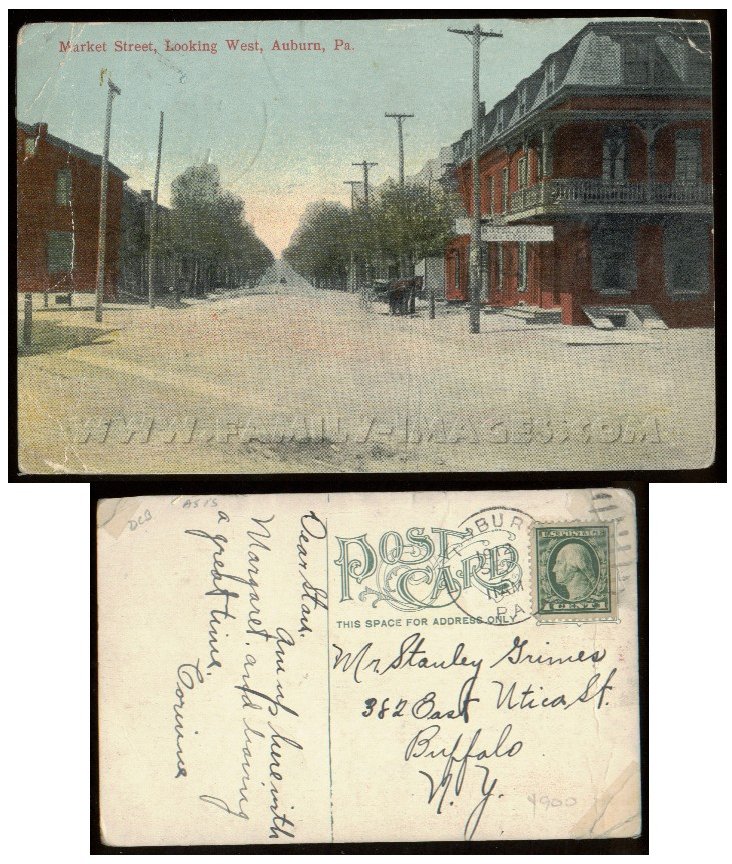 Market Street, Looking West, Auburn, Pa.
WWW.FAMILY-IMAGES.COM
DCB
AS IS
Dear Stan.
Am up here with
Margaret. and having
a great time.
Corinne
POST
CARD
THIS SPACE FOR ADDRESS ONLY
BUR
11 AM
PA
U.S. POSTAGE
1 CENT 1
Mr Stanley Grimes
382 East Utica St.
Buffalo
N. Y.